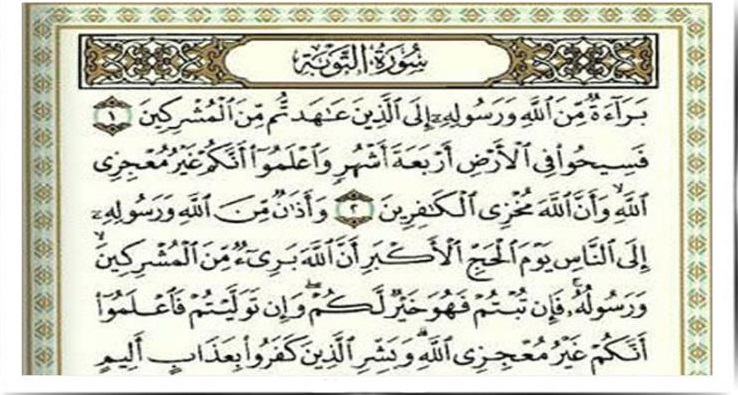 سُورَةُ التَّوْبَةِ
بَرَآءَةٌ مِّنَ ٱللَّهِ وَرَسُولِهِۦٓ إِلَى ٱلَّذِينَ عَٰهَدتُّم مِّنَ ٱلْمُشْرِكِينَ ١
فَسِيحُوا۟ فِى ٱلْأَرْضِ أَرْبَعَةَ أَشْهُرٍ وَٱعْلَمُوٓا۟ أَنَّكُمْ غَيْرُ مُعْجِزِى
ٱللَّهِ ۙ وَأَنَّ ٱللَّهَ مُخْزِى ٱلْكَٰفِرِينَ ٢ وَأَذَٰنٌ مِّنَ ٱللَّهِ وَرَسُولِهِۦٓ
إِلَى ٱلنَّاسِ يَوْمَ ٱلْحَجِّ ٱلْأَكْبَرِ أَنَّ ٱللَّهَ بَرِىٓءٌ مِّنَ ٱلْمُشْرِكِينَ ۙ
وَرَسُولُهُۥ ۚ فَإِن تُبْتُمْ فَهُوَ خَيْرٌ لَّكُمْ ۖ وَإِن تَوَلَّيْتُمْ فَٱعْلَمُوٓا۟
أَنَّكُمْ غَيْرُ مُعْجِزِى ٱللَّهِ ۗ وَبَشِّرِ ٱلَّذِينَ كَفَرُوا۟ بِعَذَابٍ أَلِيمٍ